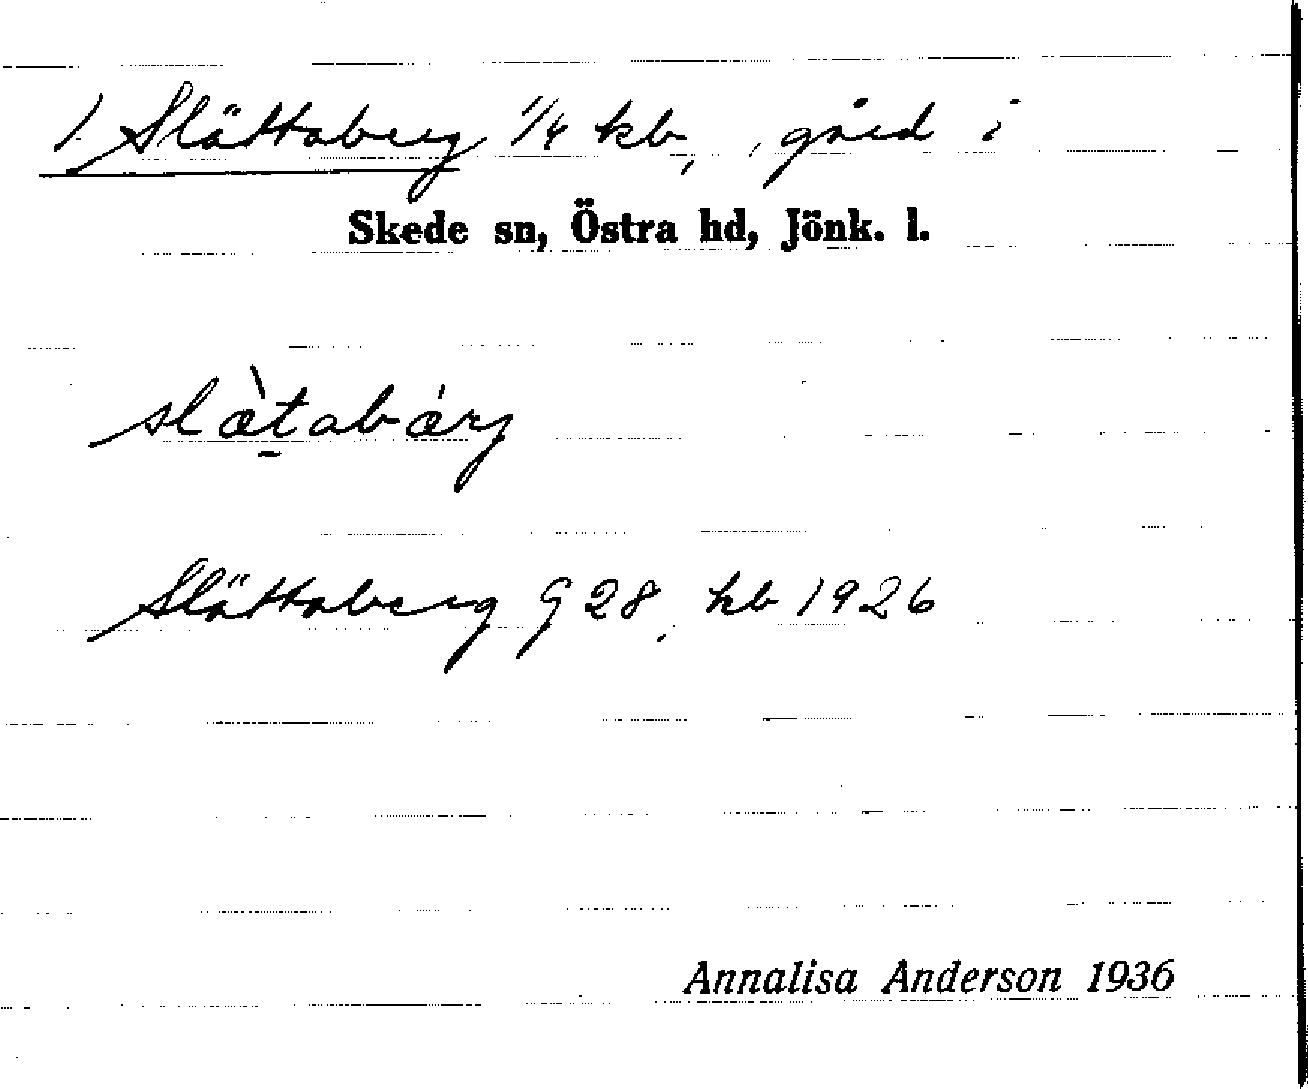 1. Slättaberg 1/4 kb, , gård i
Skede sn, Östra hd, Jönk. l.
slæ̀tabærj
Slättaberg G 28, kb 1926
Annalisa Anderson 1936